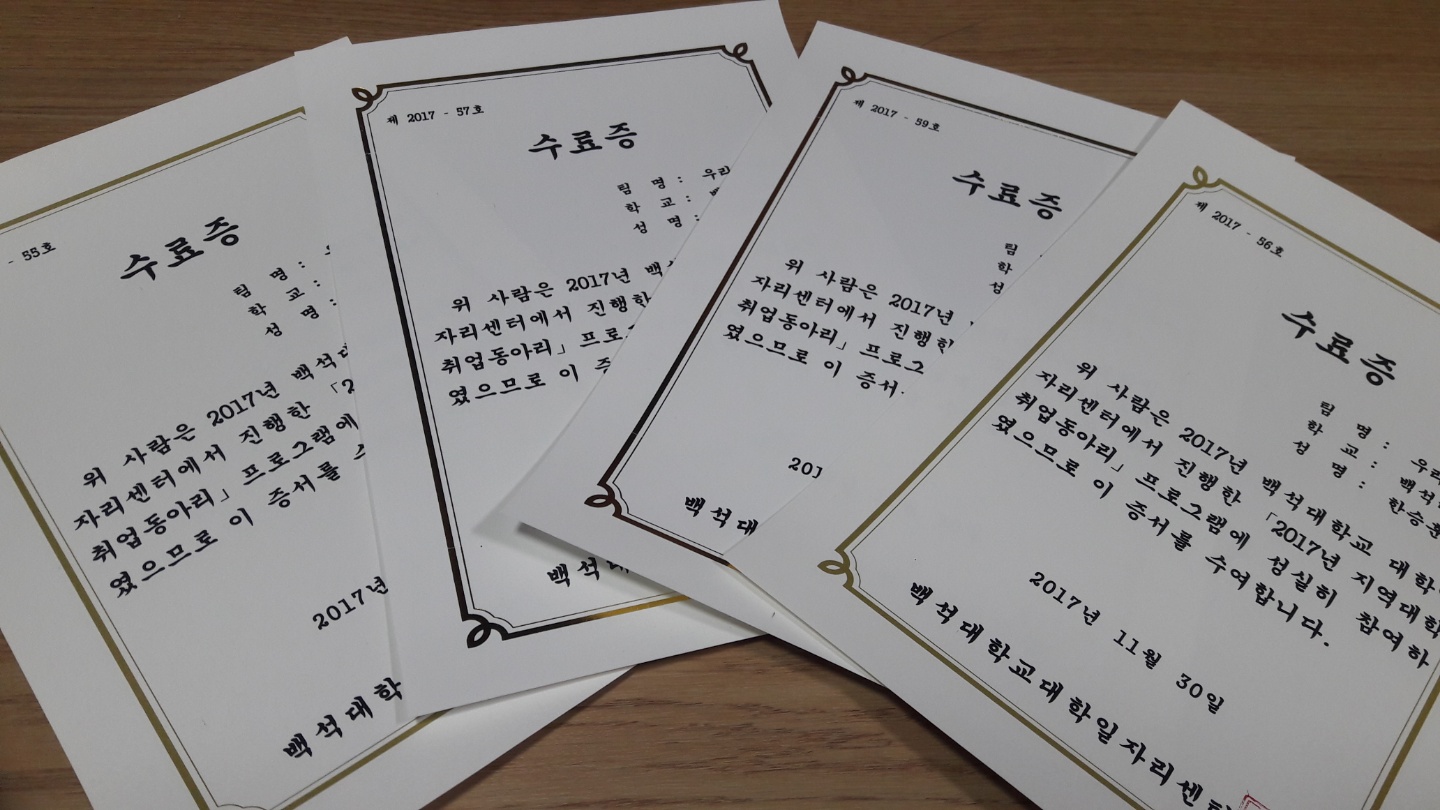 - 55호
수료증
팀 명 :
학 교 :
성 명 :
위 사람은 2017년 백석
자리센터에서 진행한 「2
취업동아리」 프로그램에
였으므로 이 증서를
2017년
백석대학
제 2017 - 57호
수료증
팀 명 : 우리
학 교 :
성 명 :
위 사람은 2017년 백석
자리센터에서 진행한
취업동아리」 프로그
였으므로 이 증
백석
제 2017 - 59호
수료증
팀
학
성
위 사람은 2017년
자리센터에서 진행한
취업동아리」 프로그
였으므로 이 증서
201
백석대
제 2017 - 56호
수료증
팀 명 : 우리
학 교 : 백석
성 명 : 한승훈
위 사람은 2017년 백석대학교 대학
자리센터에서 진행한 「2017년 지역대학
취업동아리」 프로그램에 성실히 참여하
였으므로 이 증서를 수여합니다.
2017년 11월 30일
백석대학교대학일자리센터